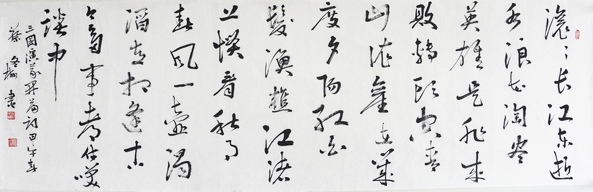 滾滾长江东逝
水浪花淘尽
英雄是非成
败转头空青
山依旧在几
度夕阳红白
髮渔樵江渚
上惯看秋月
春风一壶浊
酒喜相逢古
今多少事都付笑
谈中
三国演义开篇词甲午春
书